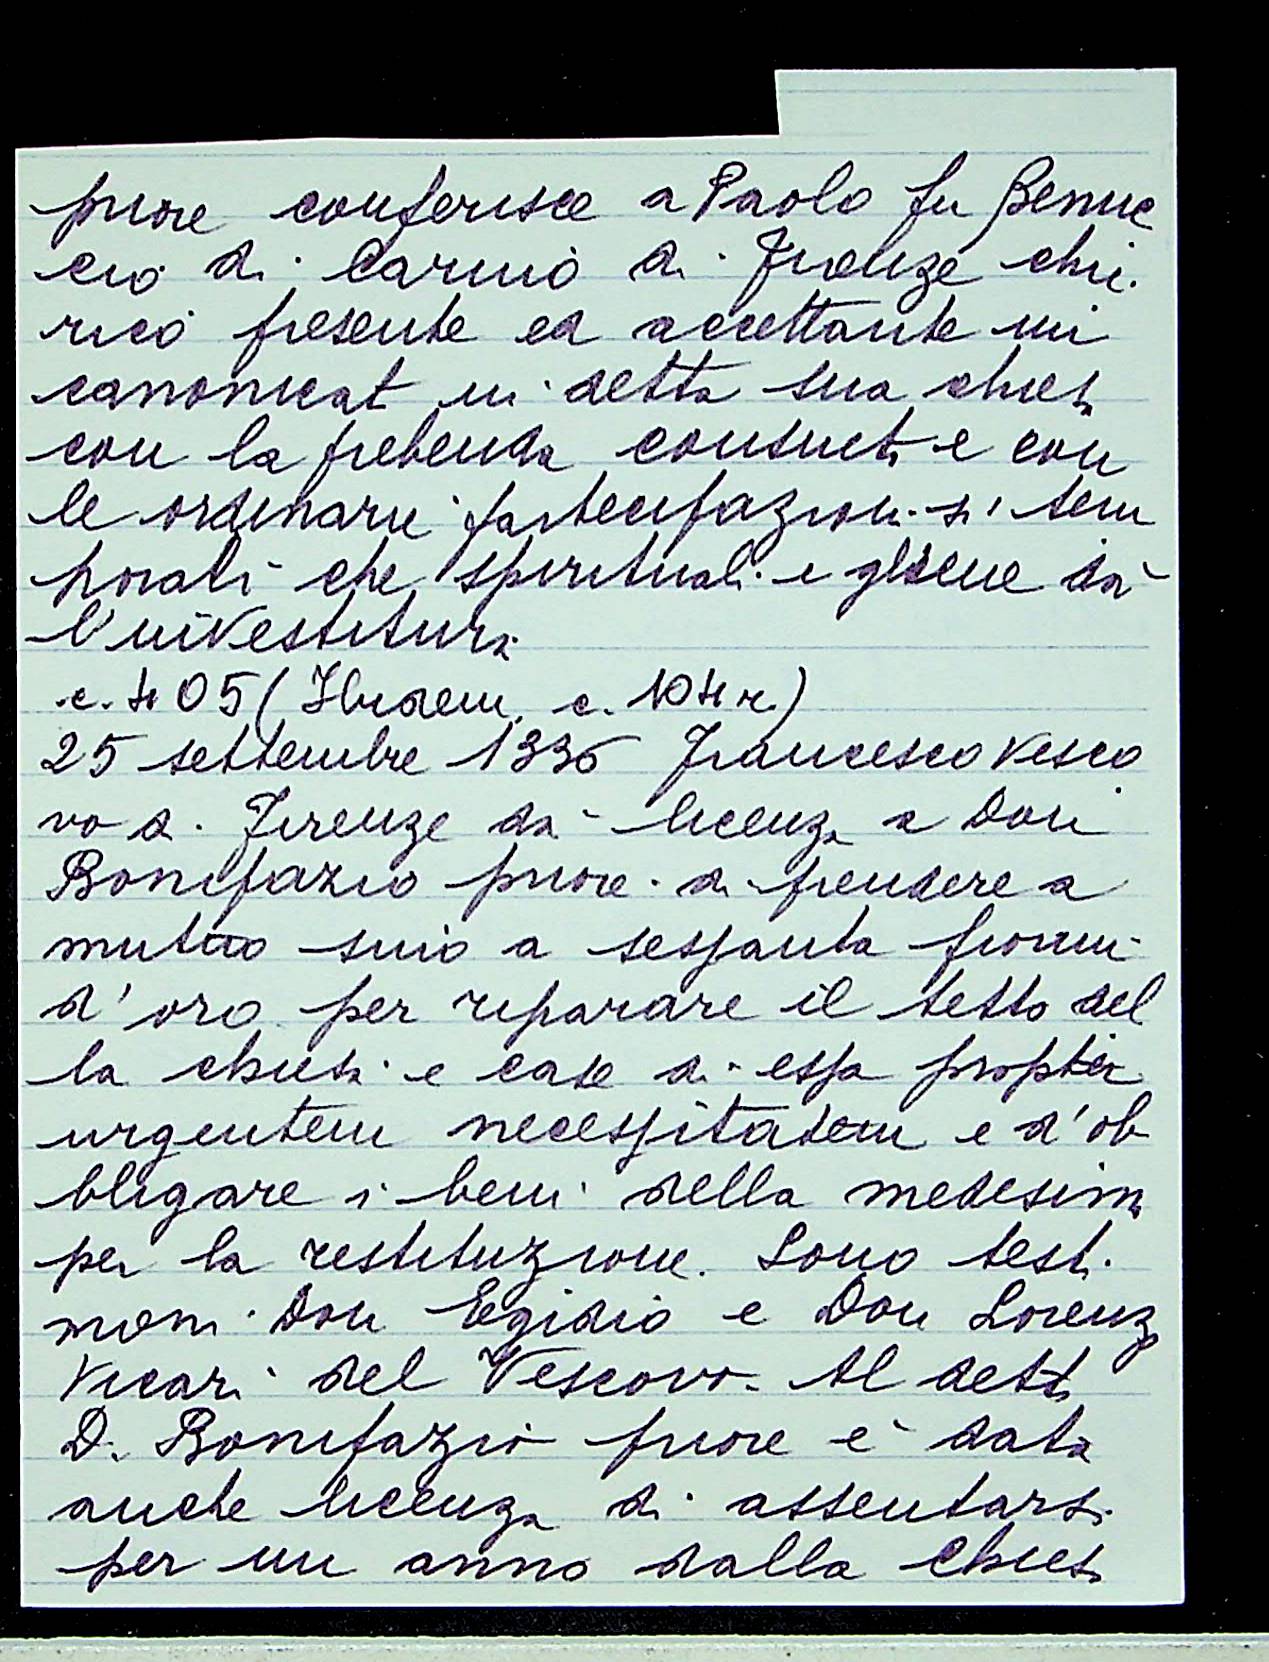 priore conferisce a Paolo fu Benuc
cio di Carino di Firenze chie
rico presente ed accettante un
canonicat in detta sua chiesa
con la prebenda consueta e con
le ordinarie partecipazioni sì tem
porali che spirituali e gliene dà
l'investitura
c. 405 (Ibidem, c. 104 r.)
25 settembre 1336 Francesco Vesco
vo di Firenze dà licenza a Don
Bonifazio priore di prendere a
mutuo sino a sessanta fiorini
d'oro per riparare il tetto del
la chiesa e case di essa propter
urgentem necessitatem e d'ob
bligare i beni della medesima
per la restituzione. Sono testi
moni Don Egidio e Don Lorenzo
Vicari del Vescovo. Al detto
D. Bonifazio priore è data
anche licenza di assentarsi
per un anno dalla chiesa